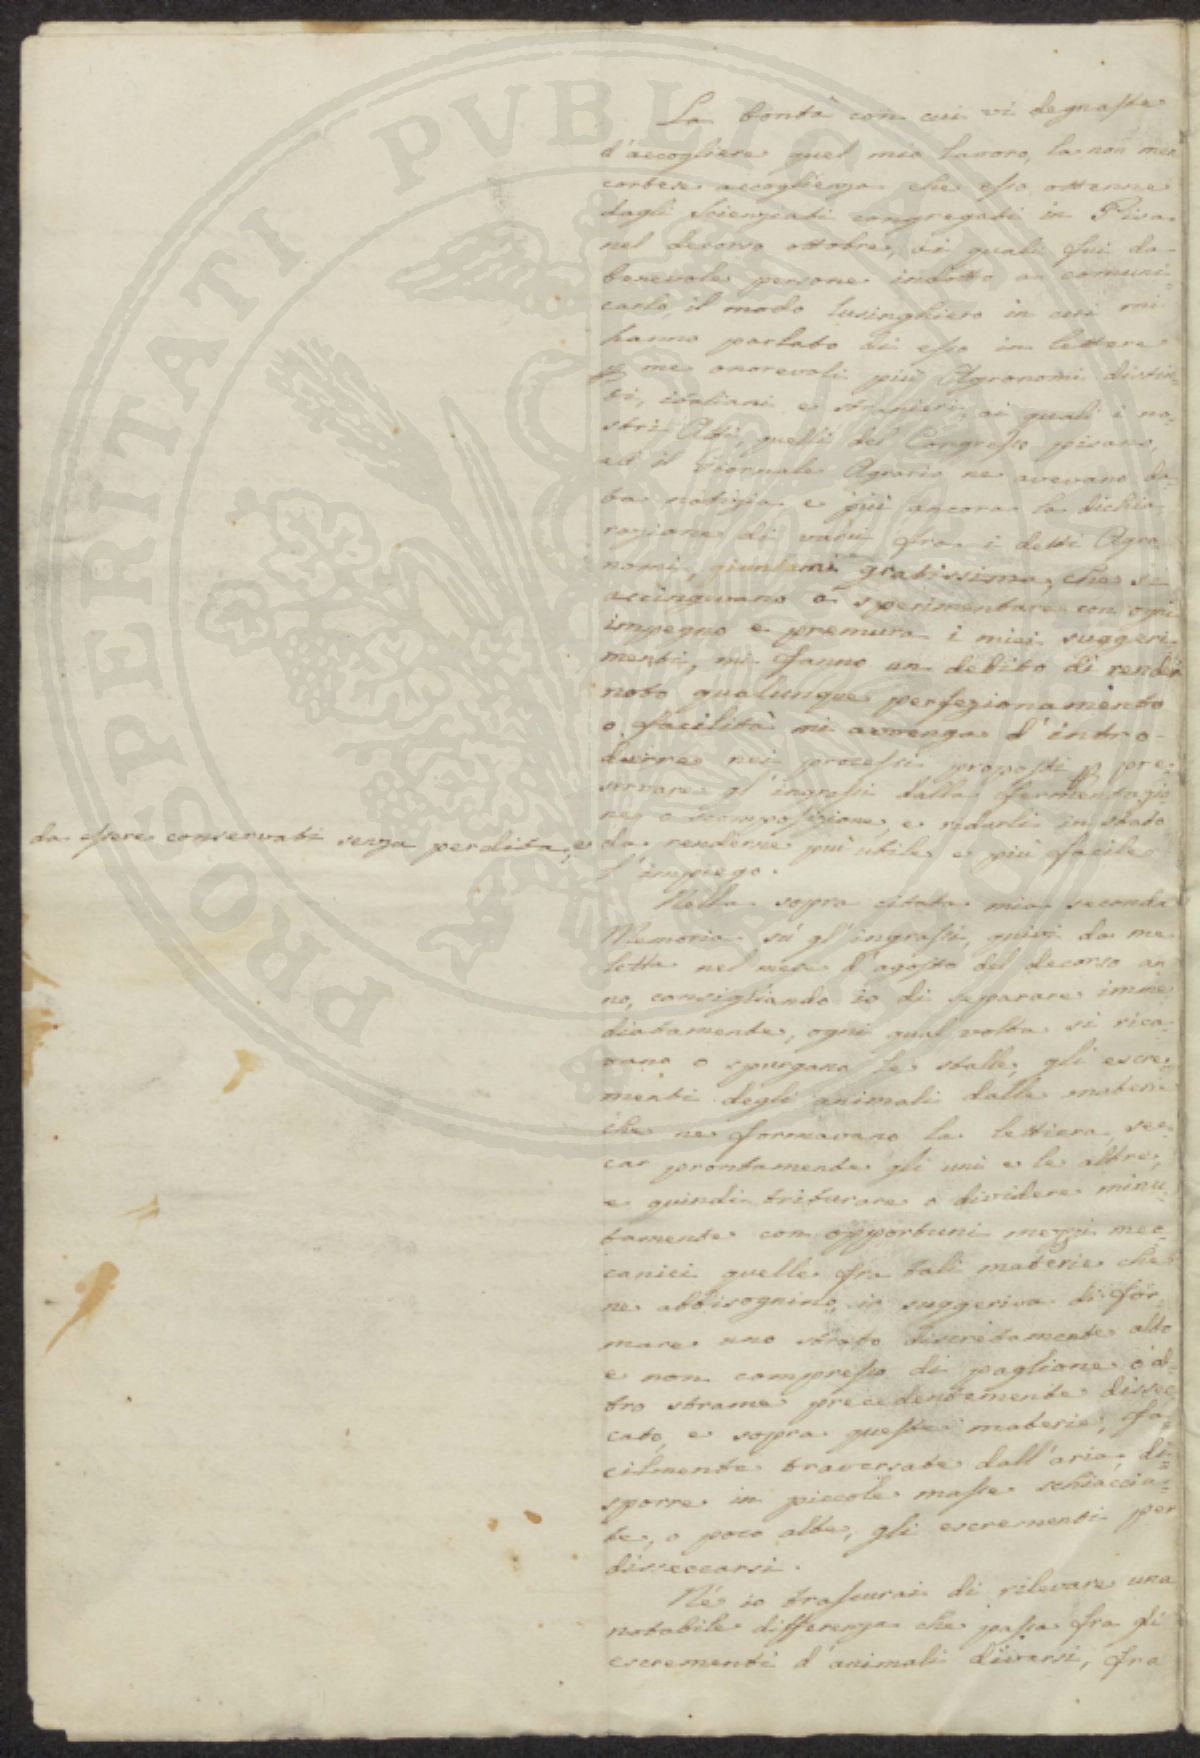 La bontà con cui vi degnaste
d'accogliere quel mio lavoro, la non men
cortese accoglienza che esso ottenne
dagli Scienziati congregati in Pisa
nel decorso ottobre, ai quali fui da
benevole persone indotto a comuni-
carlo, il modo lusinghiero in cui mi
hanno parlato di esso in lettere
p me onorevoli più Agronomi distin-
ti, italiani e stranieri, ai quali i no-
stri Atti, quelli del Congresso pisano,
ed il Giornale Agrario ne avevano da-
ta notizia e più ancora la dichia-
razione di varii fra i detti Agro-
nomi, giuntami gratissima, che si
accingevano a sperimentare con ogni
impegno e premura i miei suggeri-
menti, mi fanno un debito di render
noto qualunque perfezionamento
o facilità mi avvenga d'intro-
durre nei processi proposti p pre-
servare gl'ingrassi dalla fermentazio-
ne o scomposizione, e ridurli in stato
da essere conservati senza perdita, e
da renderne più utile e più facile
l'impiego.
Nella sopra citata mia seconda
Memoria su gl'ingrassi, quivi da me
letta nel mese d'agosto del decorso an
no, consigliando io di separare imme
diatamente, ogni qual volta si rica-
vano o spurgano le stalle, gli escre-
menti degli animali dalle materie
che ne formavano la lettiera, sec-
car prontamente gli uni e le altre,
e quindi triturare o dividere minu-
tamente con opportuni mezzi mec-
canici quelle fra tali materie che
ne abbisognino, io suggeriva di for-
mare uno strato discretamente alto
e non compresso di paglione o al-
tro strame precedentemente dissec
cato, e sopra queste materie, fa-
cilmente traversate dall'aria, di-
sporre in piccole masse schiaccia-
te, o poco alte, gli escrementi per
disseccarsi.
Né io trascurai di rilevare una
notabile differenza che passa fra gli
escrementi d'animali diversi, fra
PROSPERITATI PVBLICAE